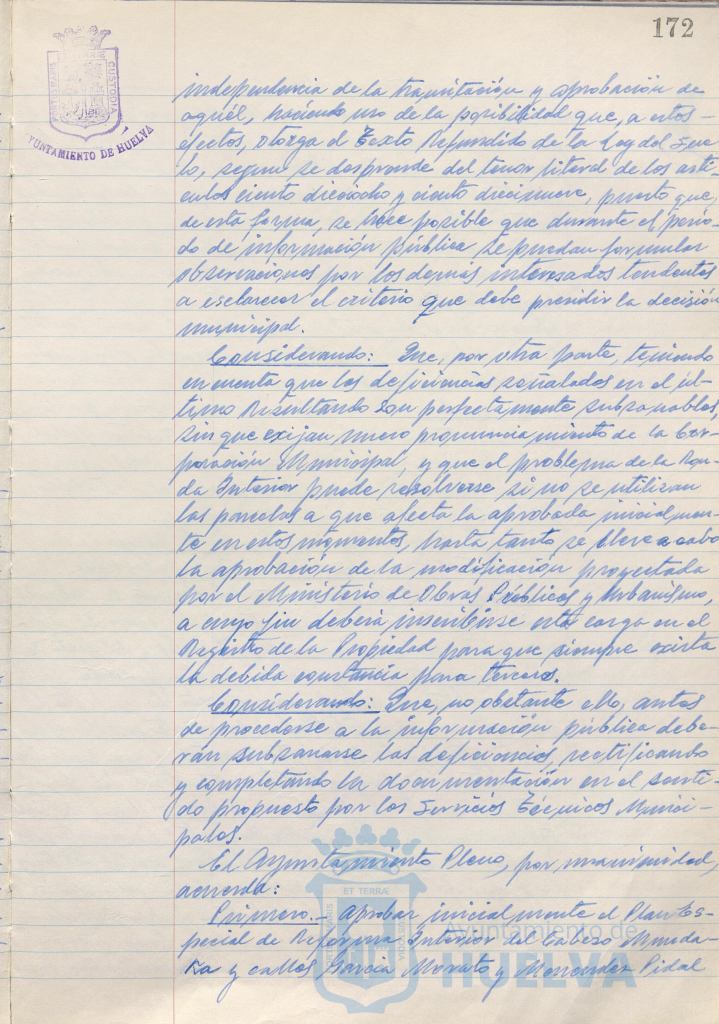 172
PORTUS MARIS ET TERRÆ CUSTODIA
AYUNTAMIENTO DE HUELVA
independencia de la tramitación y aprobación de
aquél, haciendo uso de la posibilidad que, a estos
efectos, otorga el Texto Refundido de la Ley del Sue-
lo, según se desprende del tenor literal de los artí-
culos ciento dieciocho y ciento diecinueve, puesto que,
de esta forma, se hace posible que durante el perío-
do de información pública se puedan formular
observaciones por los demás interesados tendentes
a esclarecer el criterio que debe presidir la decisión
municipal.
Considerando: Que, por otra parte, teniendo
en cuenta que las deficiencias señaladas en el úl-
timo Resultando son perfectamente subsanables,
sin que exijan nuevo pronunciamiento de la Cor-
poración Municipal, y que el problema de la Ron-
da Interior puede resolverse si no se utilizan
las parcelas a que afecta la aprobada inicialmen-
te en estos momentos, hasta tanto se lleve a cabo
la aprobación de la modificación proyectada
por el Ministerio de Obras Públicas y Urbanismo,
a cuyo fin deberá inscribirse esta carga en el
Registro de la Propiedad para que siempre exista
la debida constancia para terceros.
Considerando: Que, no obstante ello, antes
de procederse a la información pública debe-
rán subsanarse las deficiencias, rectificando
y completando la documentación en el senti-
do propuesto por los Servicios Técnicos Munici-
pales.
El Ayuntamiento Pleno, por unanimidad,
acuerda:
Primero.- Aprobar inicialmente el Plan Es-
pecial de Reforma Interior del Cabezo Mundaka
y calles García Morato y Menéndez Pidal
ET TERRÆ
Ayuntamiento de
HUELVA